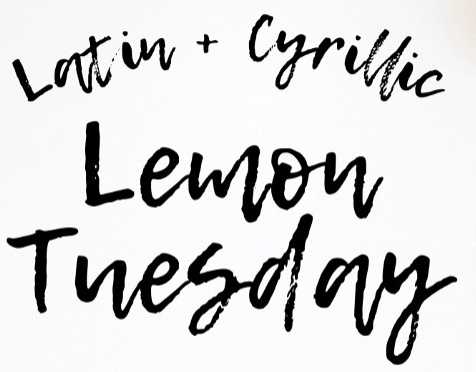 Latin + Cyrillic
Lemon
Tuesday